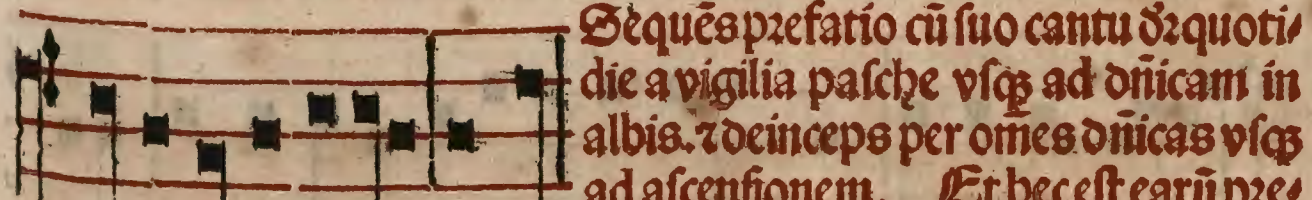 Sequēs prefatio cū suo cantu dr̄ quoti⸗
die a vigilia pasche vsqꝫ ad dn̄icam in
albis. ⁊ deinceps per om̄es dn̄icas vsqꝫ
ad ascensionem. Et hec est earū pre⸗